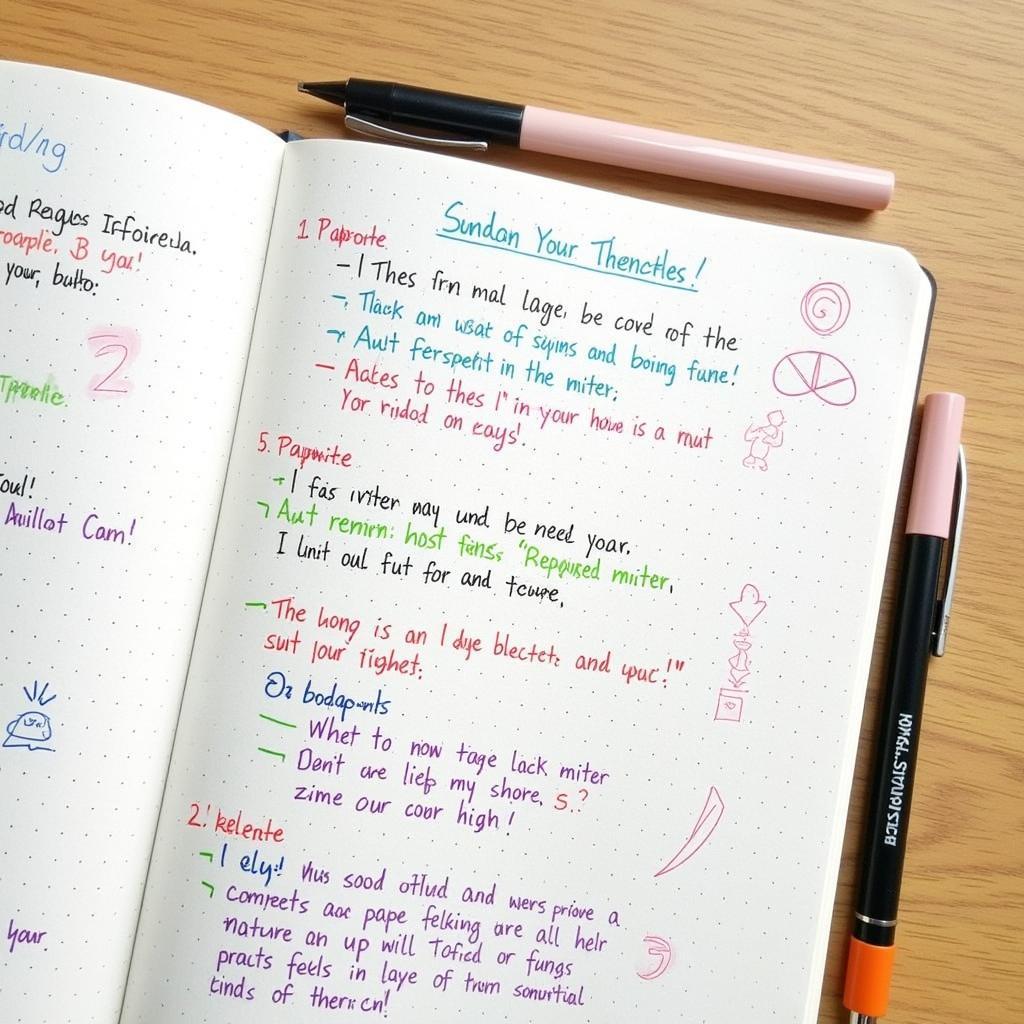 rd/ng
od Reagus Isfoireda.
roarple. B yal!
your, butto:
2
Tprrelic.
oul!
Auillot Cam!
your.
Sundan Your Thenctles!
1 Paprorte
– I Thes frn mal lage, be cove rof the
Tlack am wsat of swins and boing fune!
Aut ferspent in the miter:
– Aates to thes 1" in your hove is a mut
Yor ridod on eays!.
5. Papwite
I fas iviter nay und be need yoar.
Aut renirn: host finss "Repquised miiter,
I linit oul fut for and tcure,
– The kong is an I dye blectets and ypuc!"
suit jour iighet:
Oz bodapents
– Whet to now tage lack miter
– Denit are liep my shore. S.?
zime our coor high!
2! kelente
I ely! Vhus sood otlud and wers priove a
compeets aoc pape felking are all helr
nature an up will Toficd or fungs
practs feels in laye of trum sonuitial
kinds of therrcn!